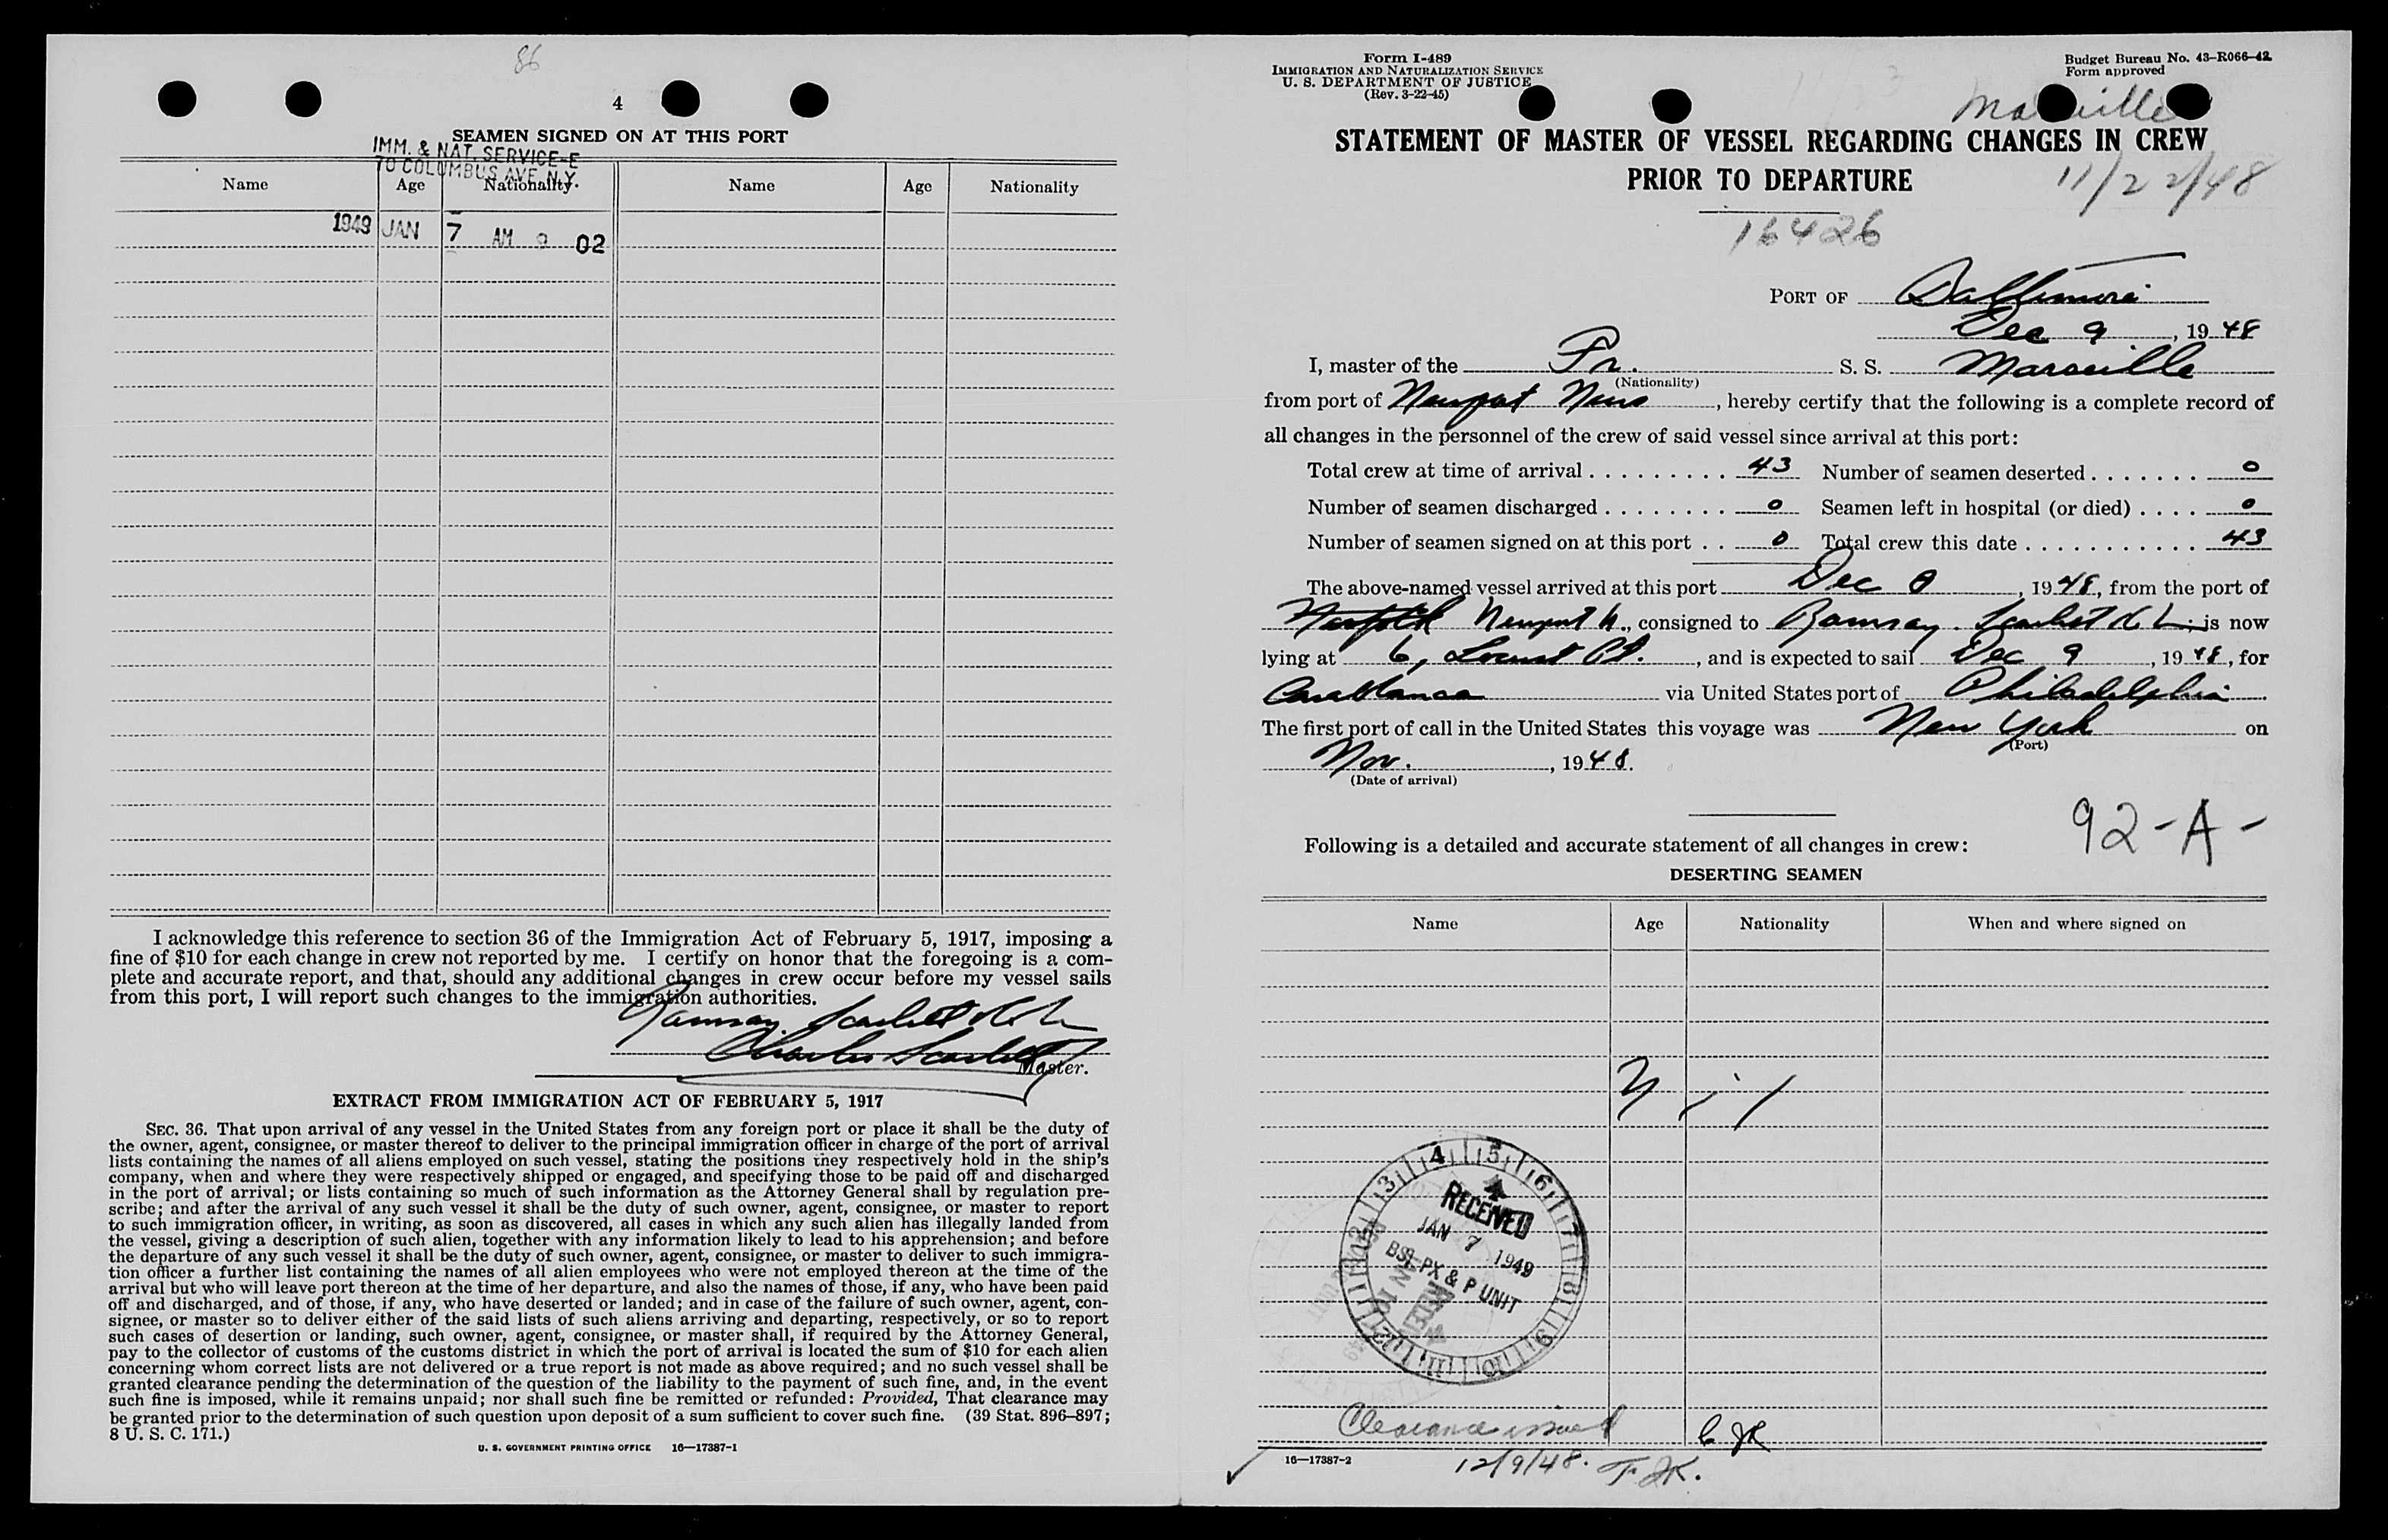 86
4
SEAMEN SIGNED ON AT THIS PORT
IMM. & NAT. SERVICE-E
70 COLUMBUS AVE N.Y.
Name Age Nationality Name Age Nationality
1949 JAN 7 AM 9 02
I acknowledge this reference to section 36 of the Immigration Act of February 5, 1917, imposing a
fine of $10 for each change in crew not reported by me. I certify on honor that the foregoing is a com-
plete and accurate report, and that, should any additional changes in crew occur before my vessel sails
from this port, I will report such changes to the immigration authorities.
Ramsay. Scarlett & Co
Charles Scarlett
Master.
EXTRACT FROM IMMIGRATION ACT OF FEBRUARY 5, 1917
SEC. 36. That upon arrival of any vessel in the United States from any foreign port or place it shall be the duty of
the owner, agent, consignee, or master thereof to deliver to the principal immigration officer in charge of the port of arrival
lists containing the names of all aliens employed on such vessel, stating the positions they respectively hold in the ship's
company, when and where they were respectively shipped or engaged, and specifying those to be paid off and discharged
in the port of arrival; or lists containing so much of such information as the Attorney General shall by regulation pre-
scribe; and after the arrival of any such vessel it shall be the duty of such owner, agent, consignee, or master to report
to such immigration officer, in writing, as soon as discovered, all cases in which any such alien has illegally landed from
the vessel, giving a description of such alien, together with any information likely to lead to his apprehension; and before
the departure of any such vessel it shall be the duty of such owner, agent, consignee, or master to deliver to such immigra-
tion officer a further list containing the names of all alien employees who were not employed thereon at the time of the
arrival but who will leave port thereon at the time of her departure, and also the names of those, if any, who have been paid
off and discharged, and of those, if any, who have deserted or landed; and in case of the failure of such owner, agent, con-
signee, or master so to deliver either of the said lists of such aliens arriving and departing, respectively, or so to report
such cases of desertion or landing, such owner, agent, consignee, or master shall, if required by the Attorney General,
pay to the collector of customs of the customs district in which the port of arrival is located the sum of $10 for each alien
concerning whom correct lists are not delivered or a true report is not made as above required; and no such vessel shall be
granted clearance pending the determination of the question of the liability to the payment of such fine, and, in the event
such fine is imposed, while it remains unpaid; nor shall such fine be remitted or refunded: Provided, That clearance may
be granted prior to the determination of such question upon deposit of a sum sufficient to cover such fine. (39 Stat. 896–897;
8 U. S. C. 171.)
U. S. GOVERNMENT PRINTING OFFICE 16—17387-1
Form I-489
IMMIGRATION AND NATURALIZATION SERVICE
U. S. DEPARTMENT OF JUSTICE
(Rev. 3-22-45)
Budget Bureau No. 43-R066-42
Form approved
STATEMENT OF MASTER OF VESSEL REGARDING CHANGES IN CREW
PRIOR TO DEPARTURE
11/22/48
16426
PORT OF Baltimore
Dec 9, 1948
I, master of the Fr. S. S. Marseille
(Nationality)
from port of Newport News, hereby certify that the following is a complete record of
all changes in the personnel of the crew of said vessel since arrival at this port:
Total crew at time of arrival 43 Number of seamen deserted 0
Number of seamen discharged 0 Seamen left in hospital (or died) 0
Number of seamen signed on at this port 0 Total crew this date 43
The above-named vessel arrived at this port Dec 8, 1948, from the port of
Norfolk Newport N., consigned to Ramsay. Scarlett & Co; is now
lying at 6, Locust Pt., and is expected to sail Dec 9, 1948, for
Casablanca via United States port of Philadelphia
The first port of call in the United States this voyage was New York on
(Port)
Nov., 1948.
(Date of arrival)
92-A-
Following is a detailed and accurate statement of all changes in crew:
DESERTING SEAMEN
Name Age Nationality When and where signed on
Nil
4 5 6 7 8 9 10 11 12 1 2 3
RECEIVED
JAN 7 1949
BSI-PX & P UNIT
Clearance issued
16—17387-2
12/9/48.